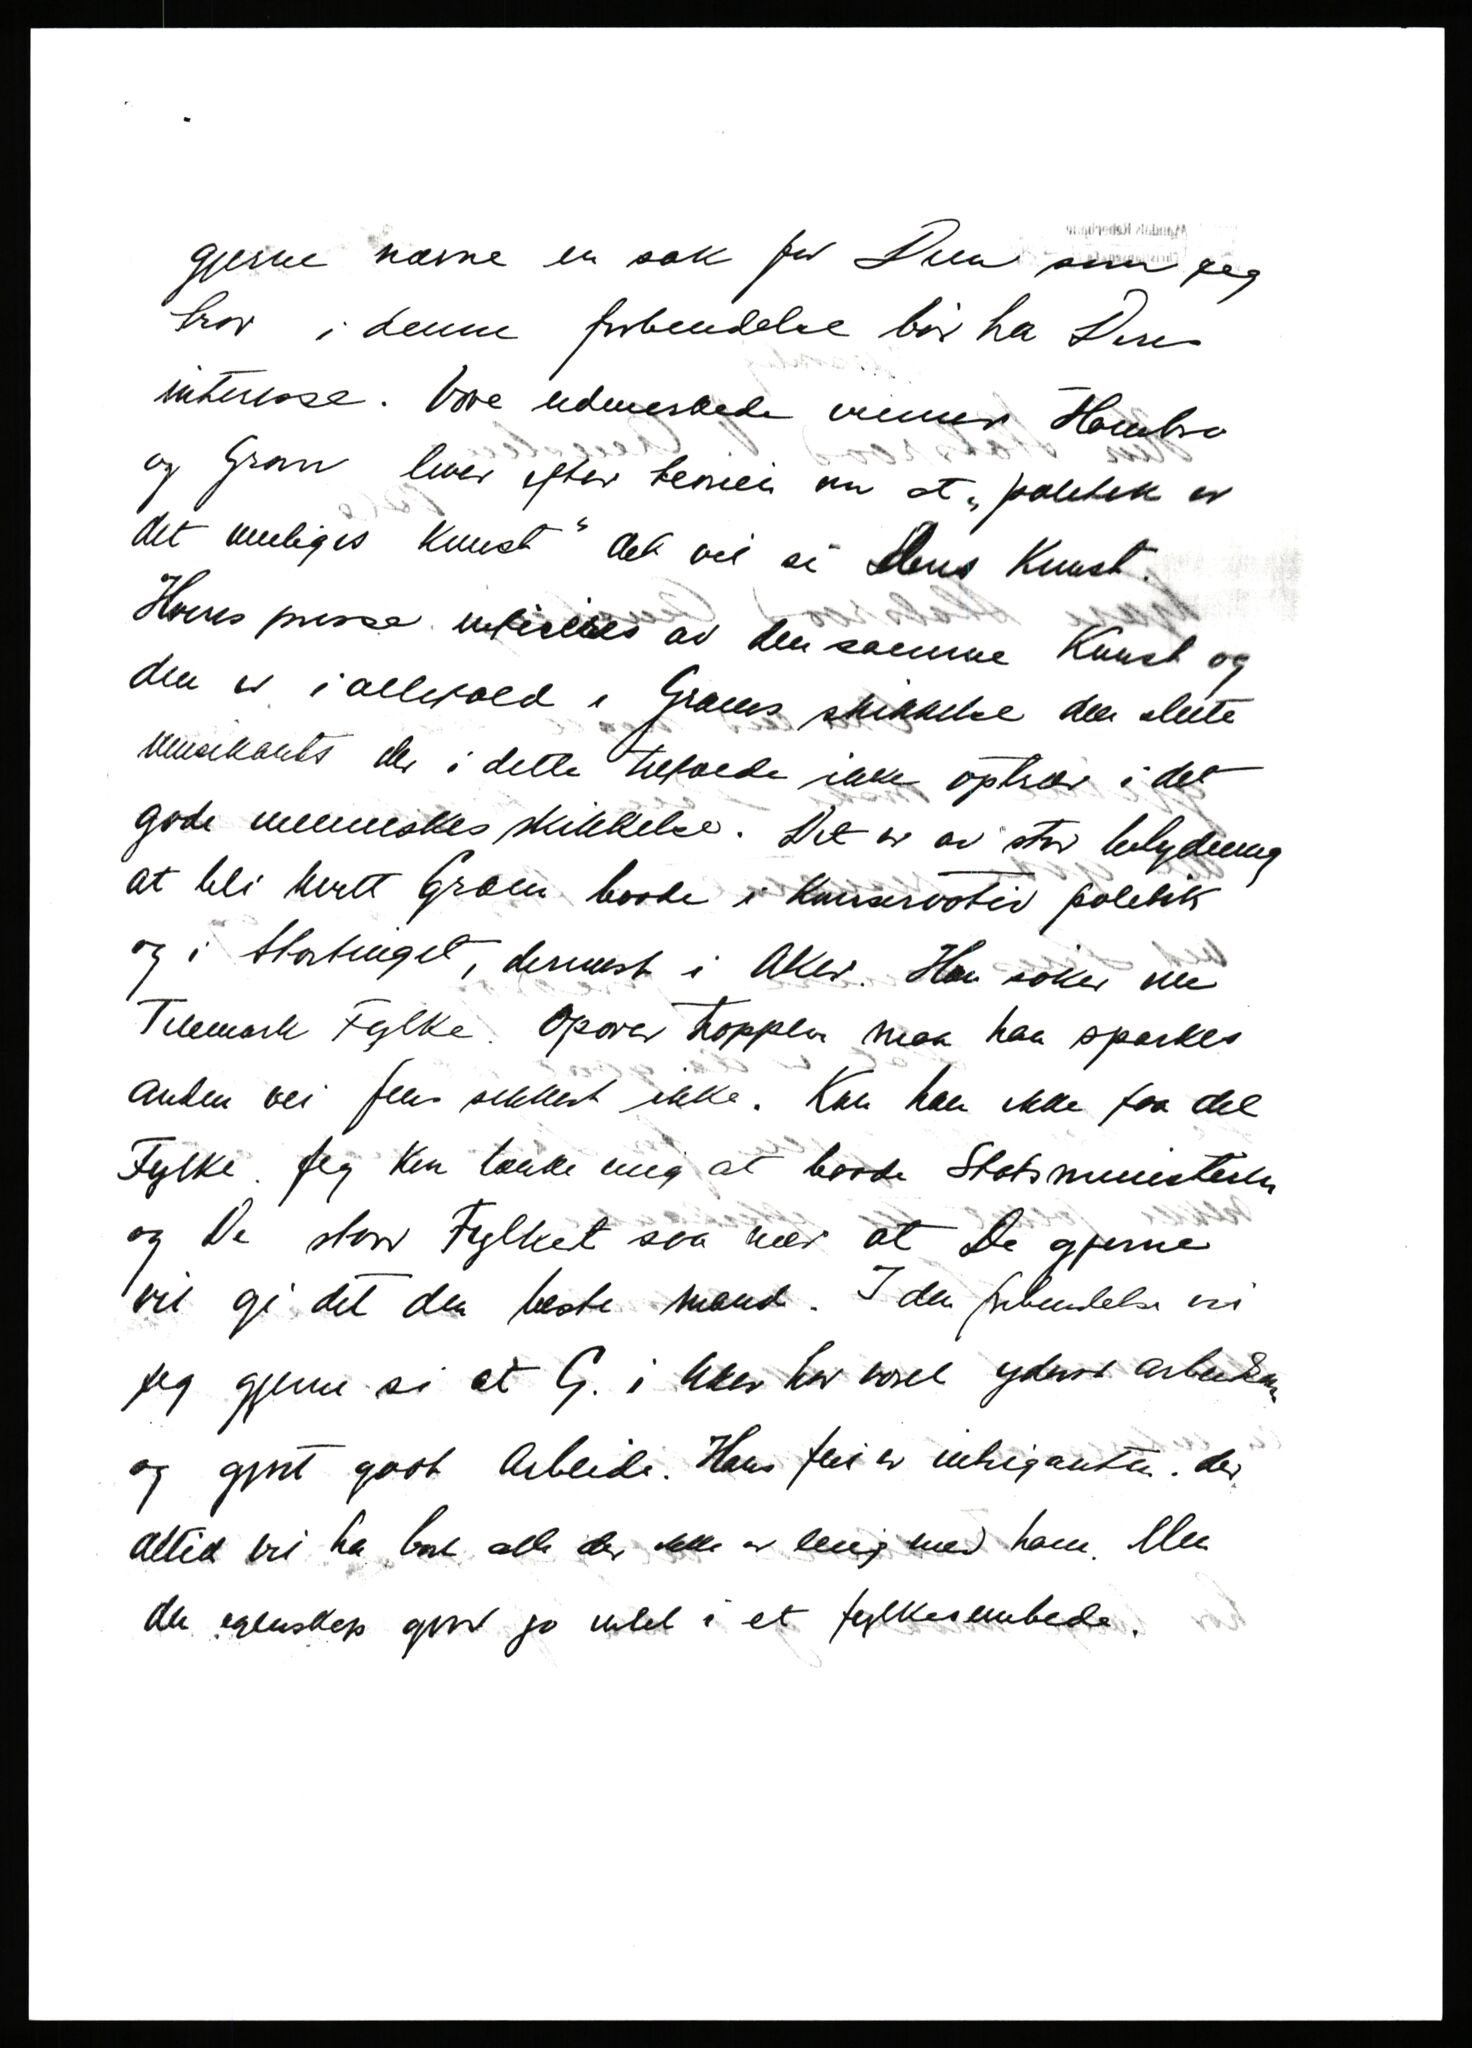 gjerne nævne en sak for Dem som jeg
tror i denne forbindelse bør ha Deres
interesse. Vore udmerkede venner Hambro
og Gram lever efter teorien om at „politik er
det muliges kunst“ det vil si deres Kunst.
Høires presse infiseres av den samme Kunst og
den er i allefald i Grams skikkelse den slette
musikants der i dette tilfælde ikke optrær i det
gode menneskes skikkelse. Det er av stor betydning
at bli kvitt Gram baade i Konservativ politik
og i Stortinget, dernæst i Aker. Han søker nu
Telemark Fylke. Opover trappen maa han sparkes
anden vei sikkert ikke. Kan han ikke faa det
Fylke. Jeg kan tænke mig at baade Statsministeren
og De staar Fylket saa nær at De gjerne
vil gi det den beste mand. I den forbindelse vil
jeg gjerne si at G. i Aker har været yderst arbeidsom
og gjort godt Arbeide. Hans feil er intriganten. der
altid vil ha bort alle der ikke er enig med ham. Men
den egenskap gjør jo intet i et fylkesembede.